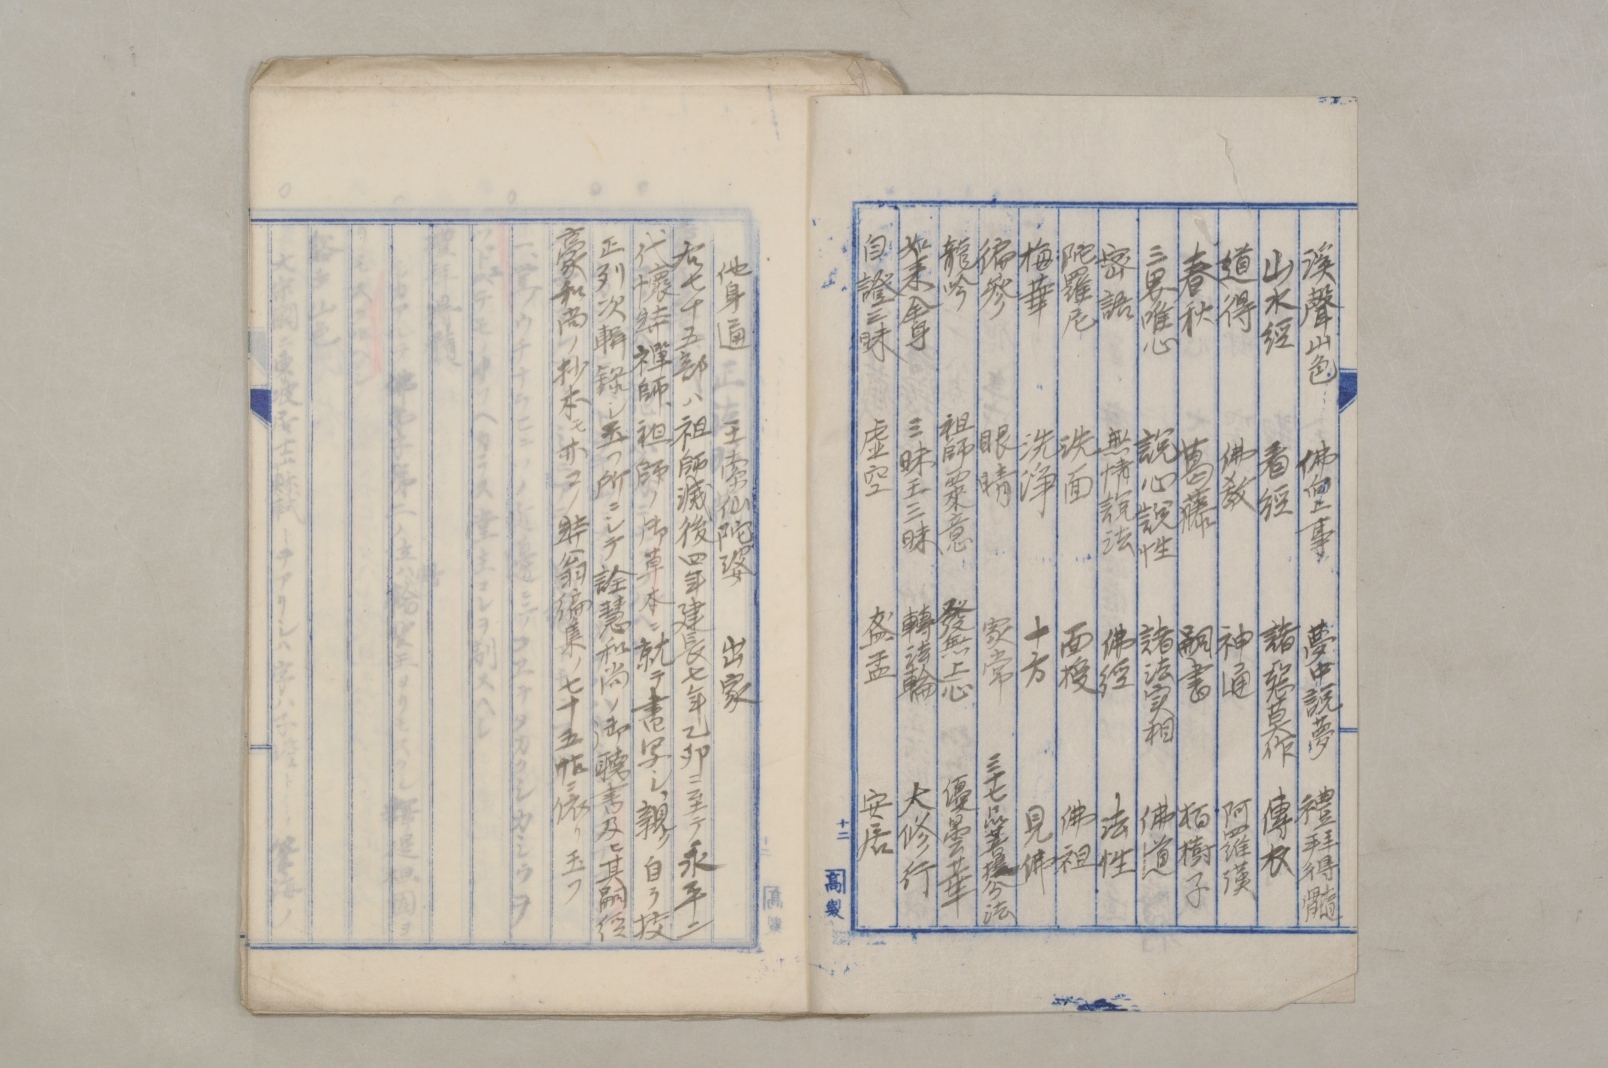 溪聲山色 佛向上事 夢中說夢 禮拜得髓
山水經 看經 諸惡莫作 傳衣
道得 佛教 神通 阿羅漢
春秋 葛藤 嗣書 栢樹子
三界唯心 說心說性 諸法実相 佛道
密語 無情說法 佛經 法性
陀羅尼 洗面 面授 佛祖
梅華 洗淨 十方 見佛
徧參 眼睛 家常 三十七品菩提分法
龍吟 祖師西來意 發無上心 優曇華
如来全身 三昧王三昧 轉法輪 大修行
自證三昧 虚空 盋盂 安居
十二
髙製
他身通 王索仙陀婆 出家
右七十五部ハ祖師滅後四年建長七年乙卯ニ至テ永平二
代懷弉禪師、祖師ノ御草本ニ就テ書写シ、親ク自ラ校
正列次輯録シ玉フ所ニシテ詮慧和尚ノ御聽書及ヒ其嗣經
豪和尚ノ抄本モ亦コノ弉翁編集ノ七十五帖ニ依リ玉フ